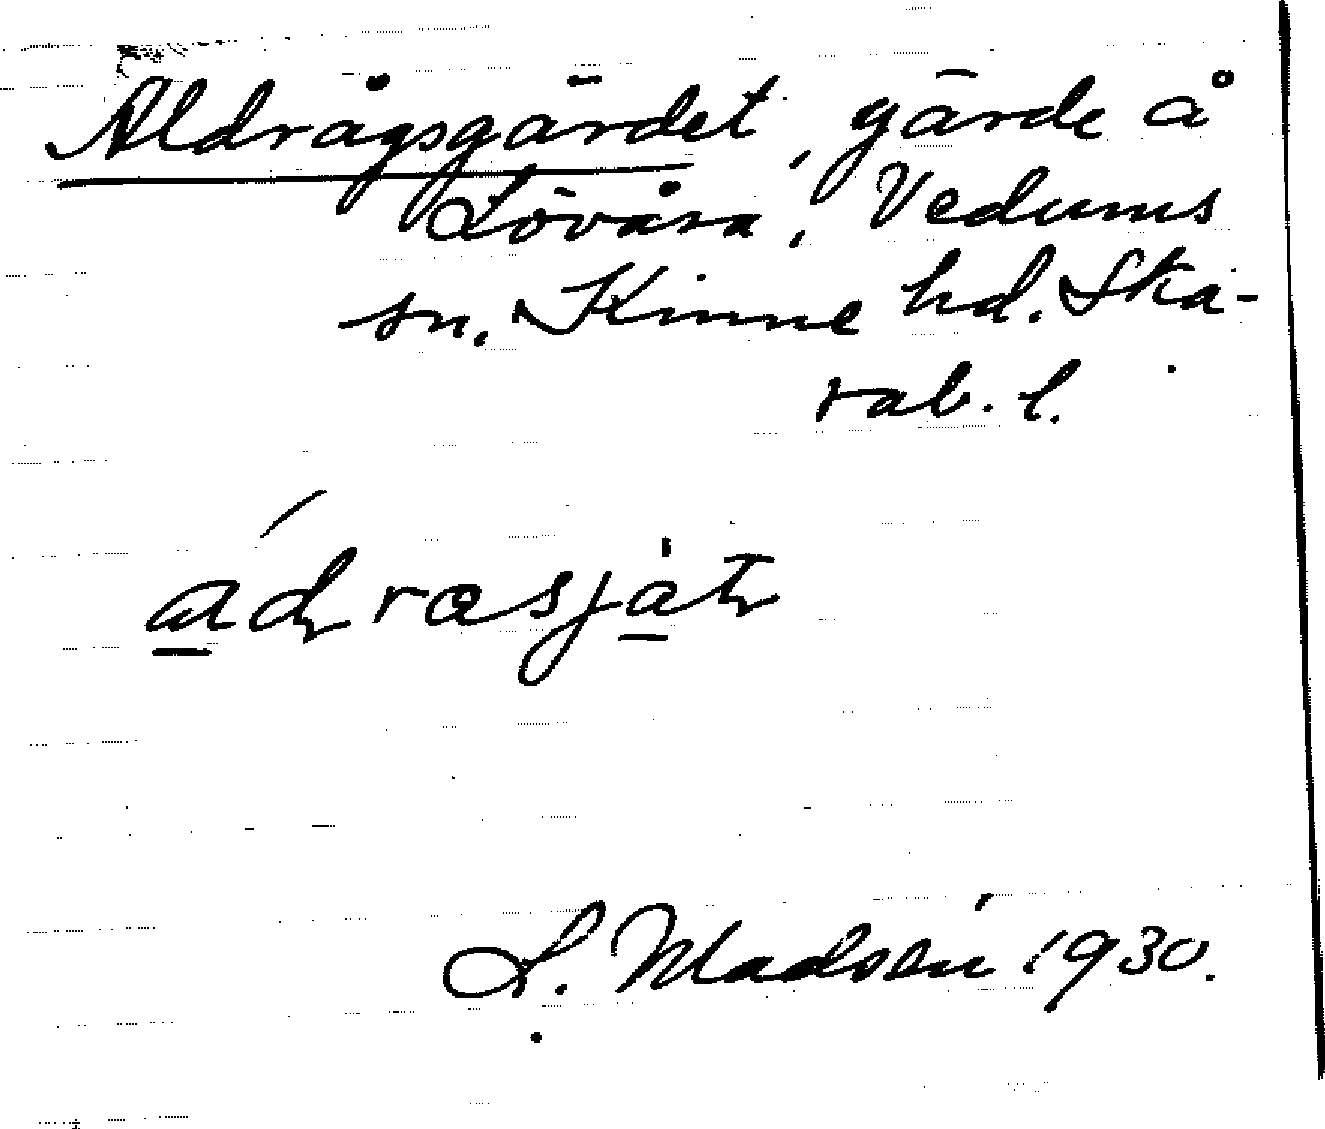 Aldrågsgärdet, gärde å
Lövåsa, Vedums
sn. Kinne hd. Ska-
rab. l.
adrasjät
L. Madsén 1930.